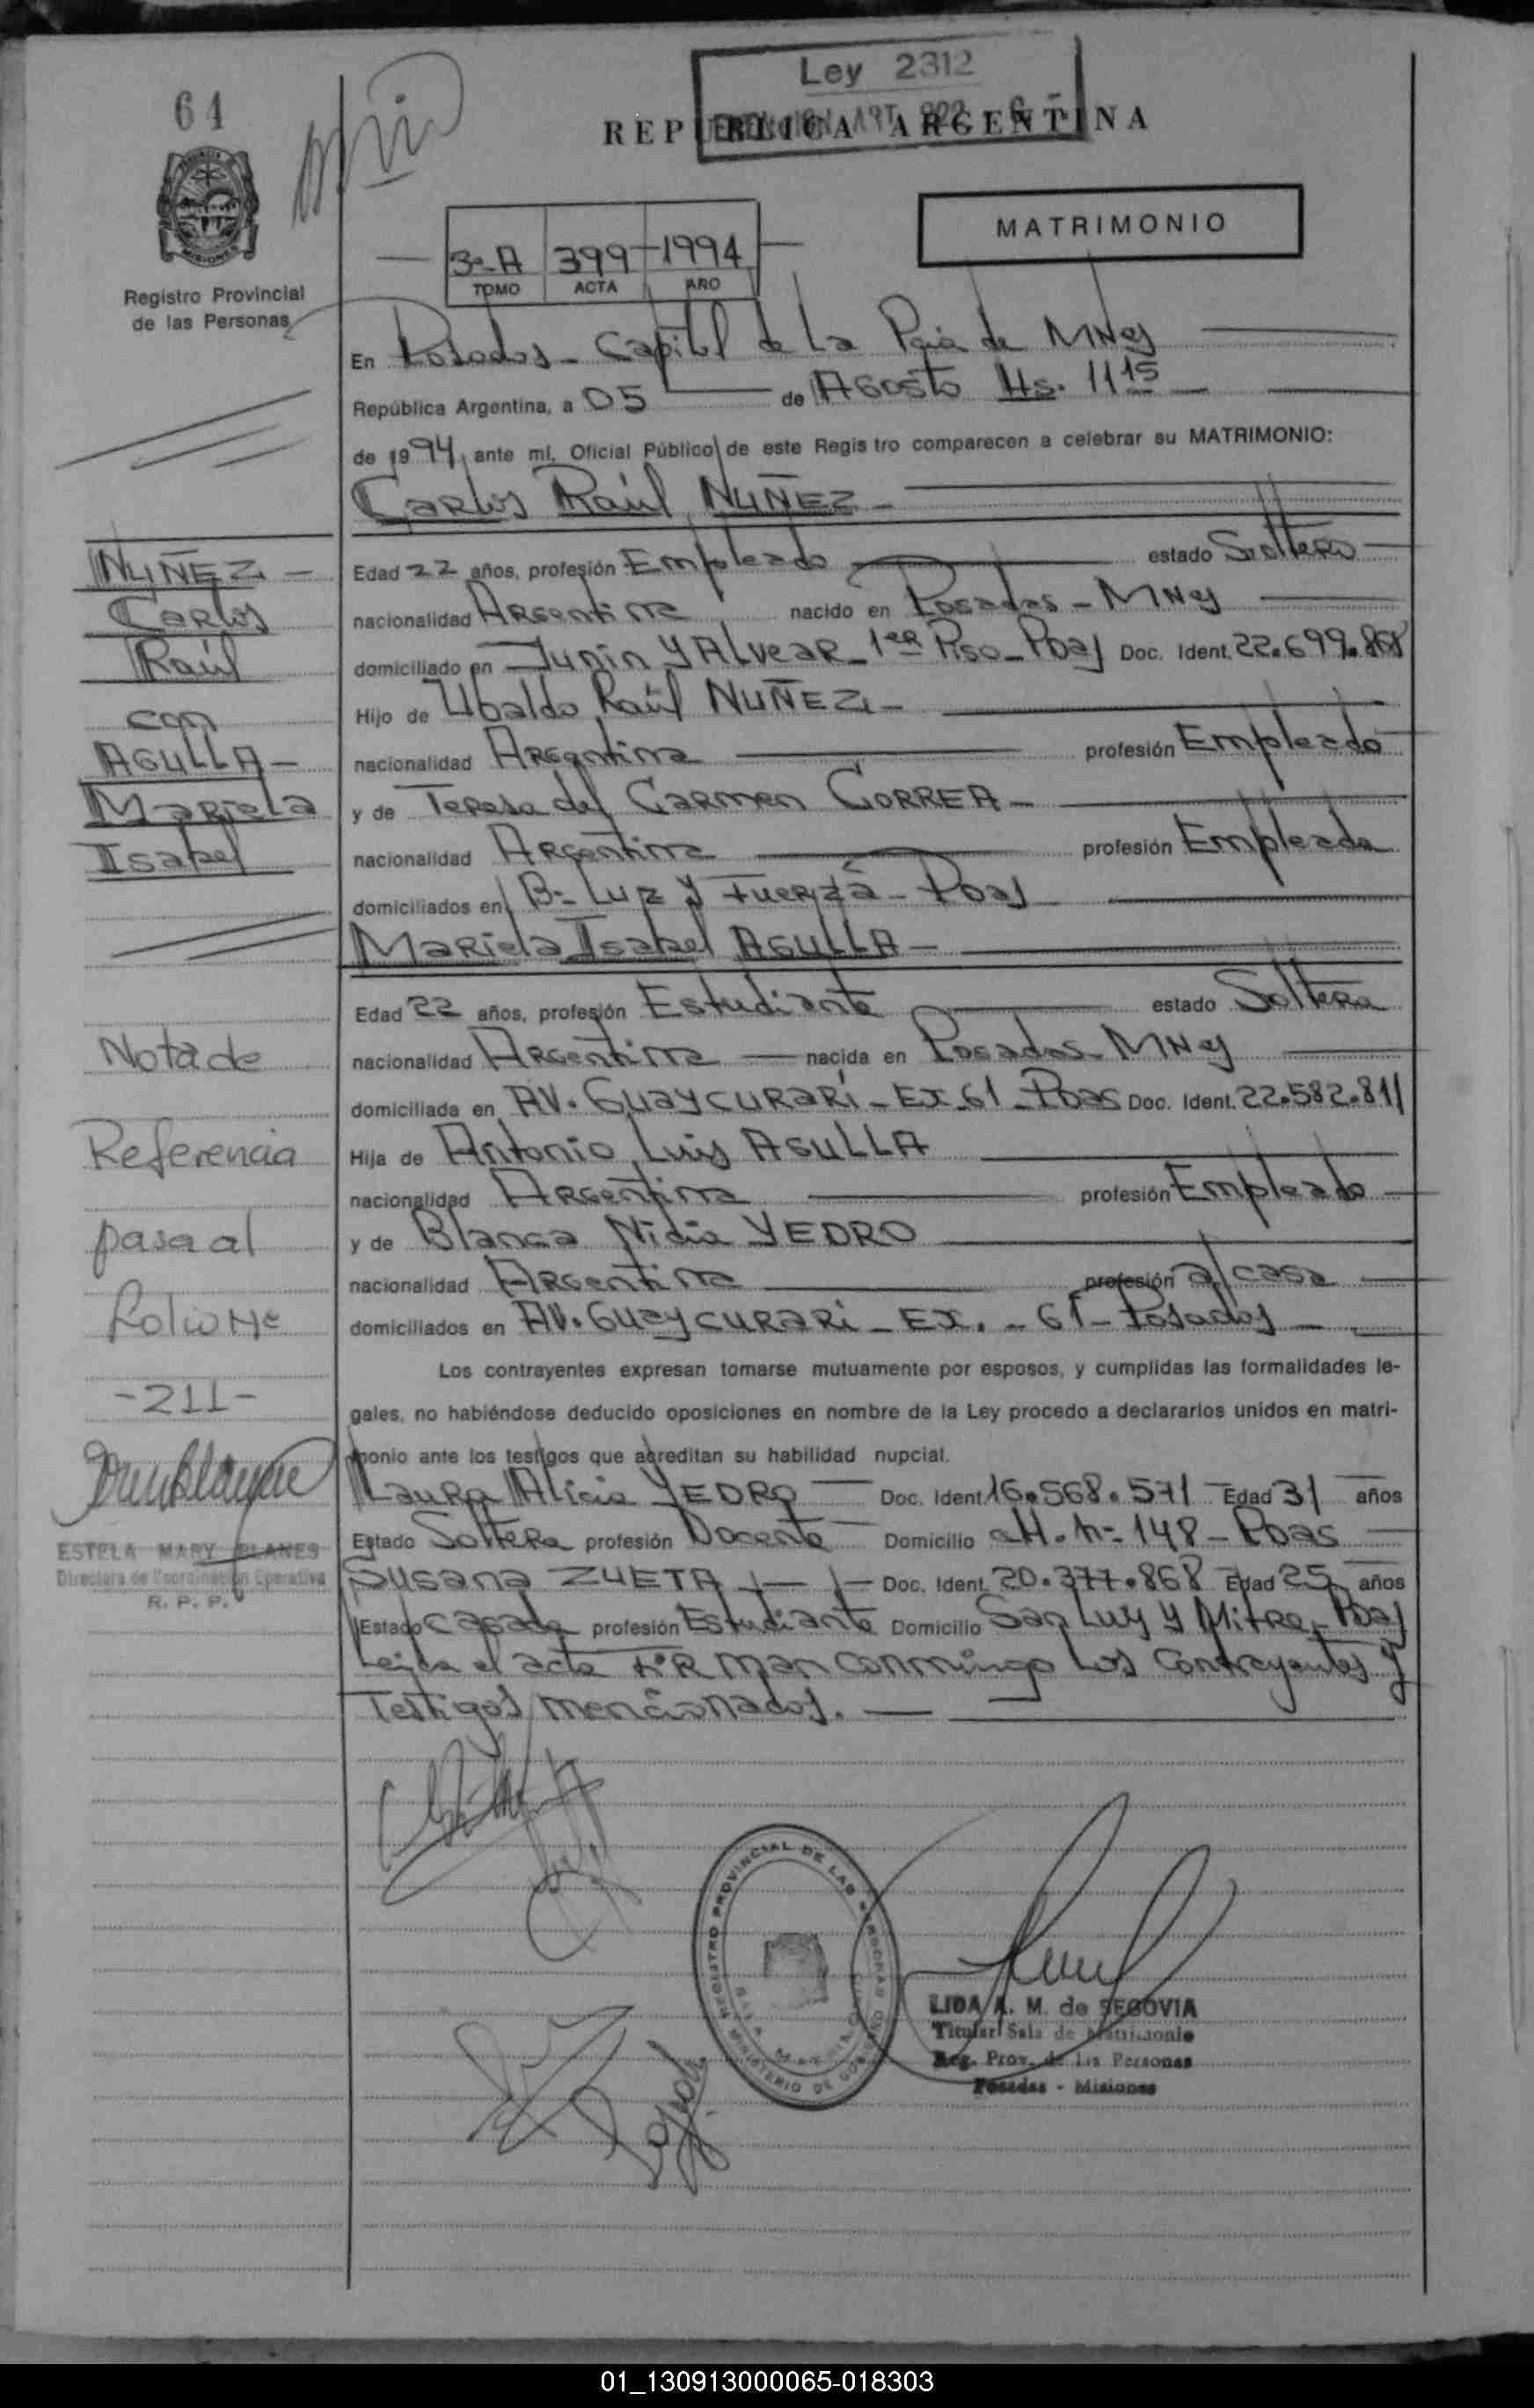 64
Ley 2312
REPUBLICA ARGENTINA
MISIONES
Registro Provincial
de las Personas
MATRIMONIO
3º-A 399-1994
TOMO ACTA AÑO
En Posadas - Capital de La Pcia de MNes
República Argentina, a 05 de Agosto Hs. 11 15
de 1994, ante mí, Oficial Público de este Regis tro comparecen a celebrar su MATRIMONIO:
Carlos Raúl NUÑEZ -
Edad 22 años, profesión Empleado estado Soltero
nacionalidad Argentina nacido en Posadas - MNes
domiciliado en Junin y Alvear - 1er Piso - Pdas Doc. Ident. 22.699.868
Hijo de Ubaldo Raúl NUÑEZ -
nacionalidad Argentina profesión Empleado
y de Teresa del Carmen CORREA -
nacionalidad Argentina profesión Empleada
domiciliados en Bº Luz y Fuerza - Pdas
Mariela Isabel AGULLA -
Edad 22 años, profesión Estudiante estado Soltera
nacionalidad Argentina nacida en Posadas - MNes
domiciliada en AV. Guaycurari - EX 61 - Pdas Doc. Ident. 22.582.811
Hija de Antonio Luis AGULLA
nacionalidad Argentina profesión Empleado
y de Blanca Nidia YEDRO
nacionalidad Argentina profesión a/casa
domiciliados en AV. Guaycurari - EX. - 61 - Posadas -
Los contrayentes expresan tomarse mutuamente por esposos, y cumplidas las formalidades le-
gales, no habiéndose deducido oposiciones en nombre de la Ley procedo a declararlos unidos en matri-
monio ante los testigos que acreditan su habilidad nupcial.
Laura Alicia YEDRO Doc. Ident. 16.568.571 Edad 31 años
Estado Soltera profesión Docente Domicilio CH. Nº 148 - Pdas
Susana ZUETA Doc. Ident. 20.377.868 Edad 25 años
Estado Casada profesión Estudiante Domicilio San Luis y Mitre - Pdas
Leida el acta Firman conmigo Los Contrayentes y
Testigos mencionados.
NUÑEZ -
Carlos
Raúl
con
AGULLA -
Mariela
Isabel
Nota de
Referencia
pasa al
Folio Nº
-211-
ESTELA MARY BLANES
Directora de Coordinación Operativa
R. P. P.
REGISTRO PROVINCIAL DE LAS PERSONAS
MINISTERIO DE GOBIERNO
LIDA A. M. de SEGOVIA
Titular Sala de Matrimonio
Reg. Prov. de las Personas
Posadas - Misiones
01_130913000065-018303